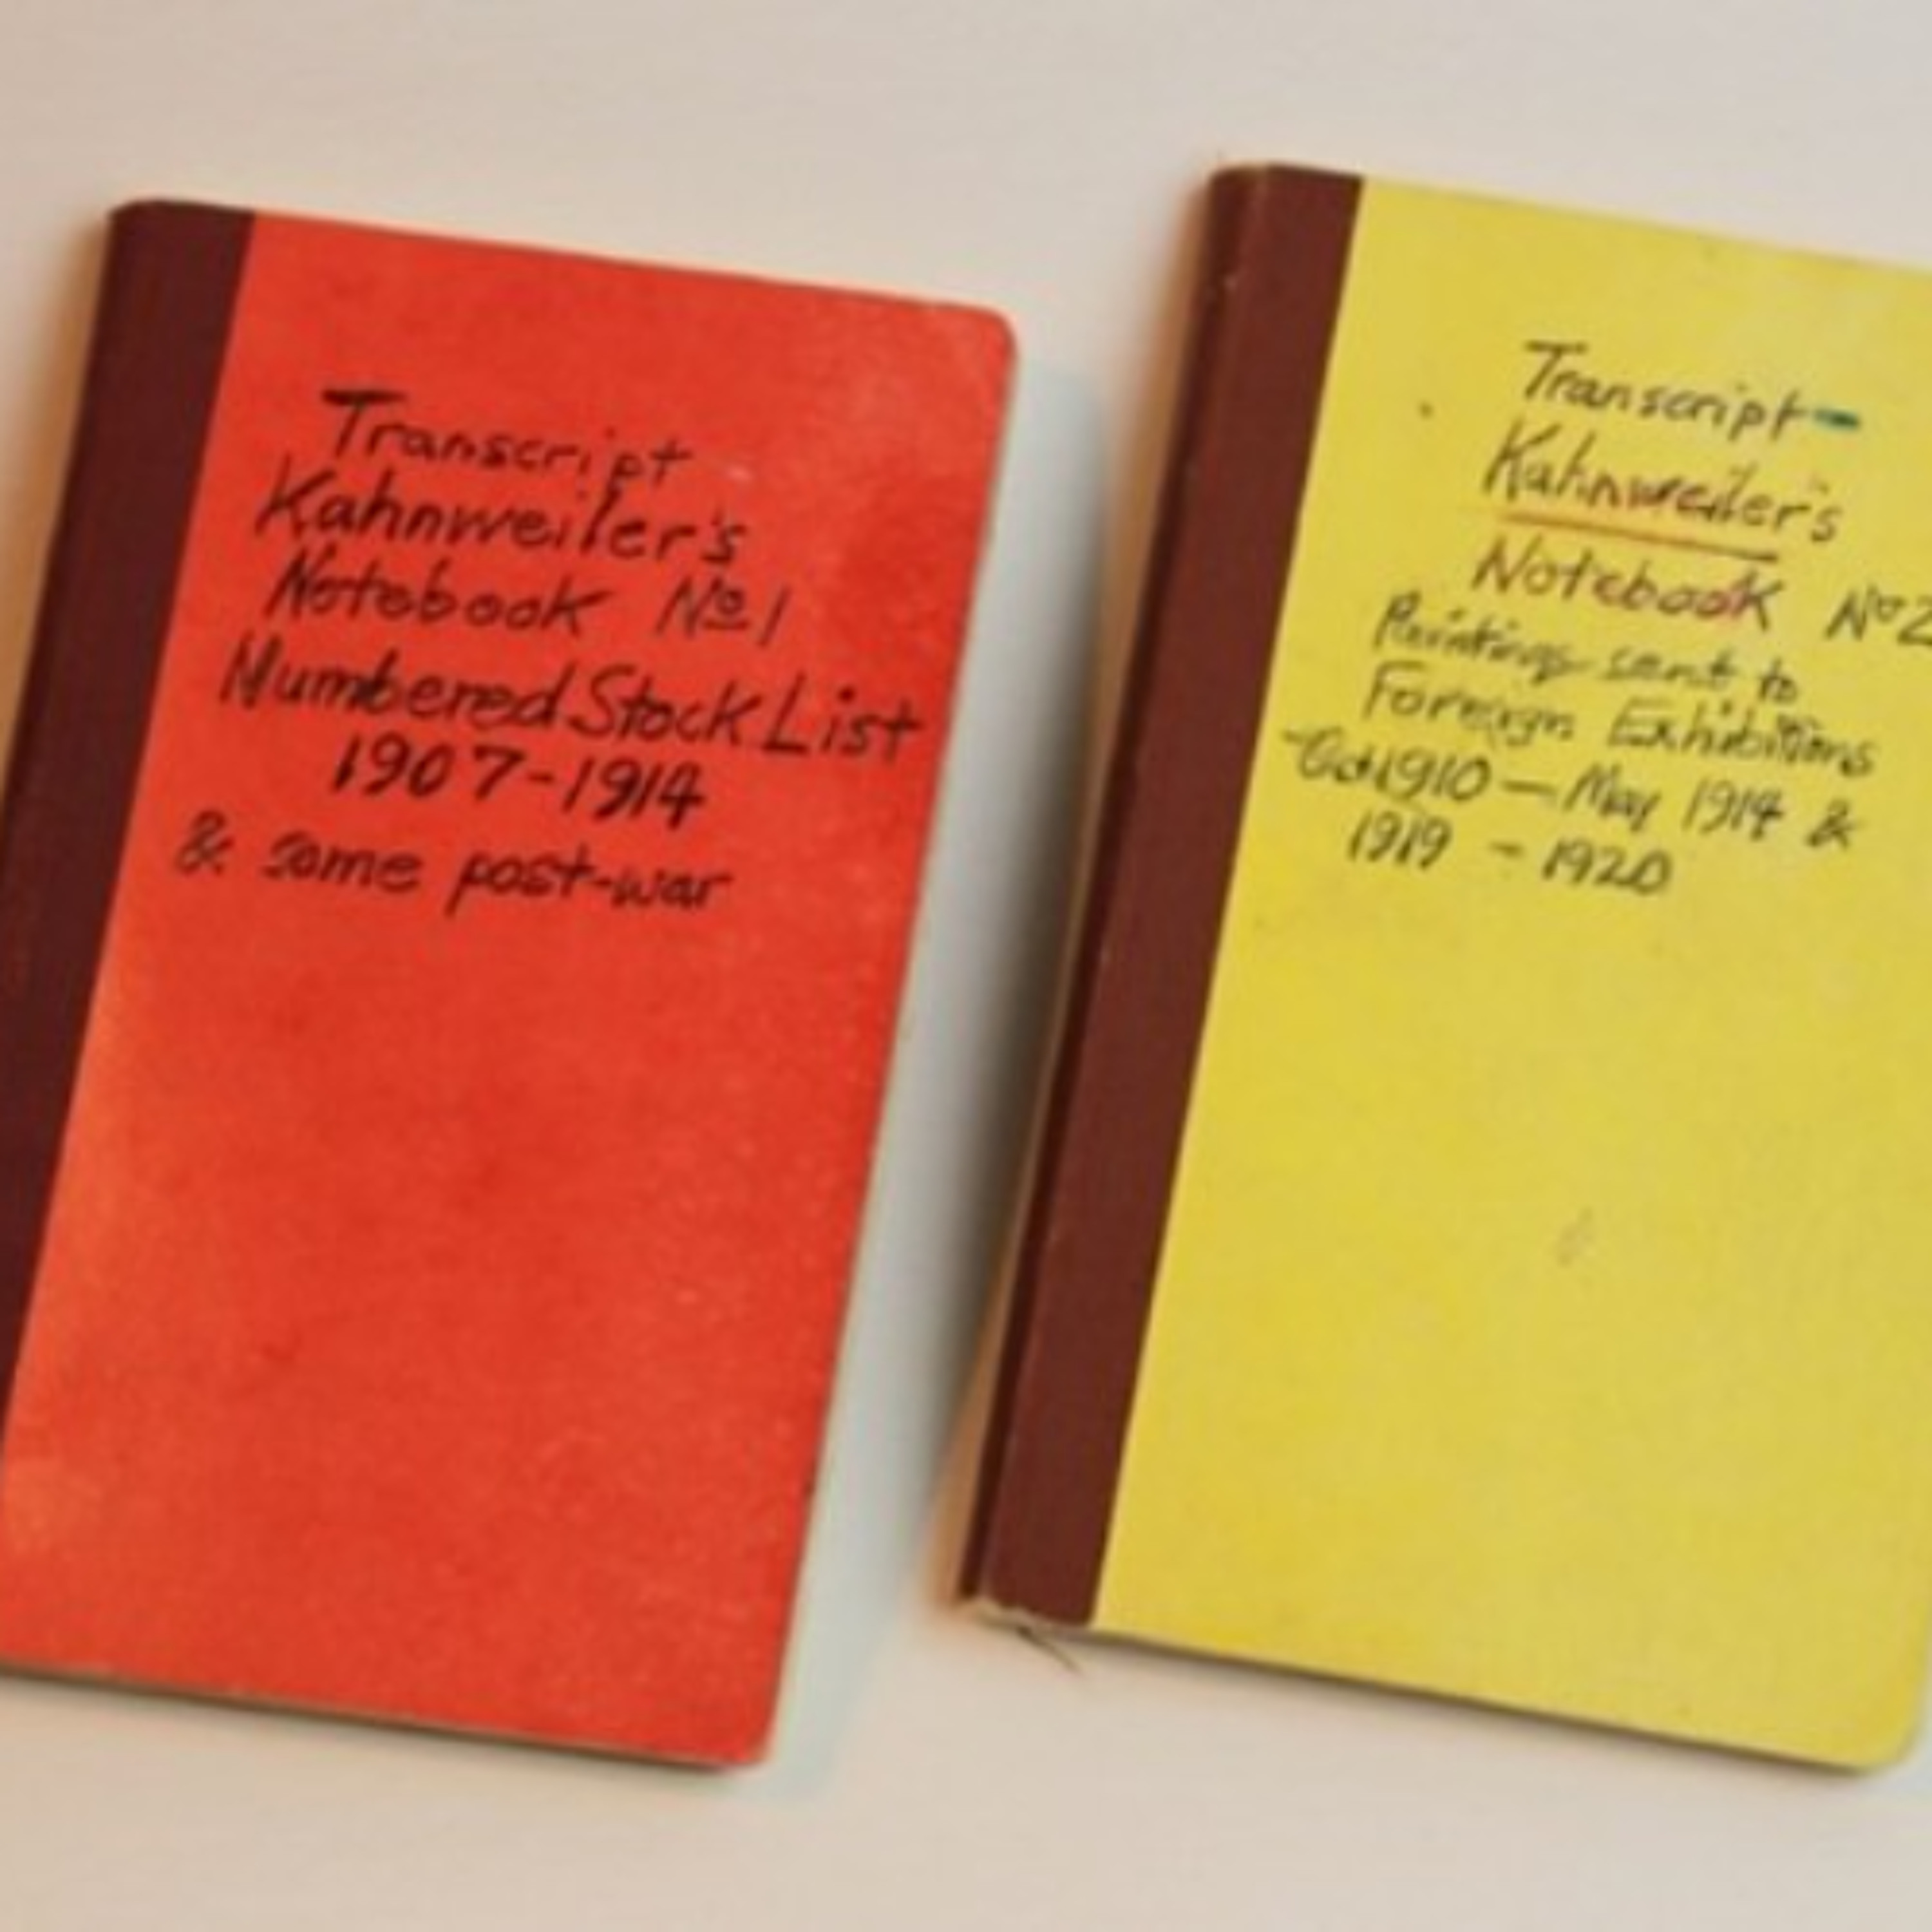 Transcript
Kahnweiler's
Notebook No 1
Numbered Stock List
1907-1914
& some post-war
Transcript-
Kahnweiler's
Notebook No 2
Paintings sent to
Foreign Exhibitions
Oct 1910 — May 1914 &
1919 - 1920